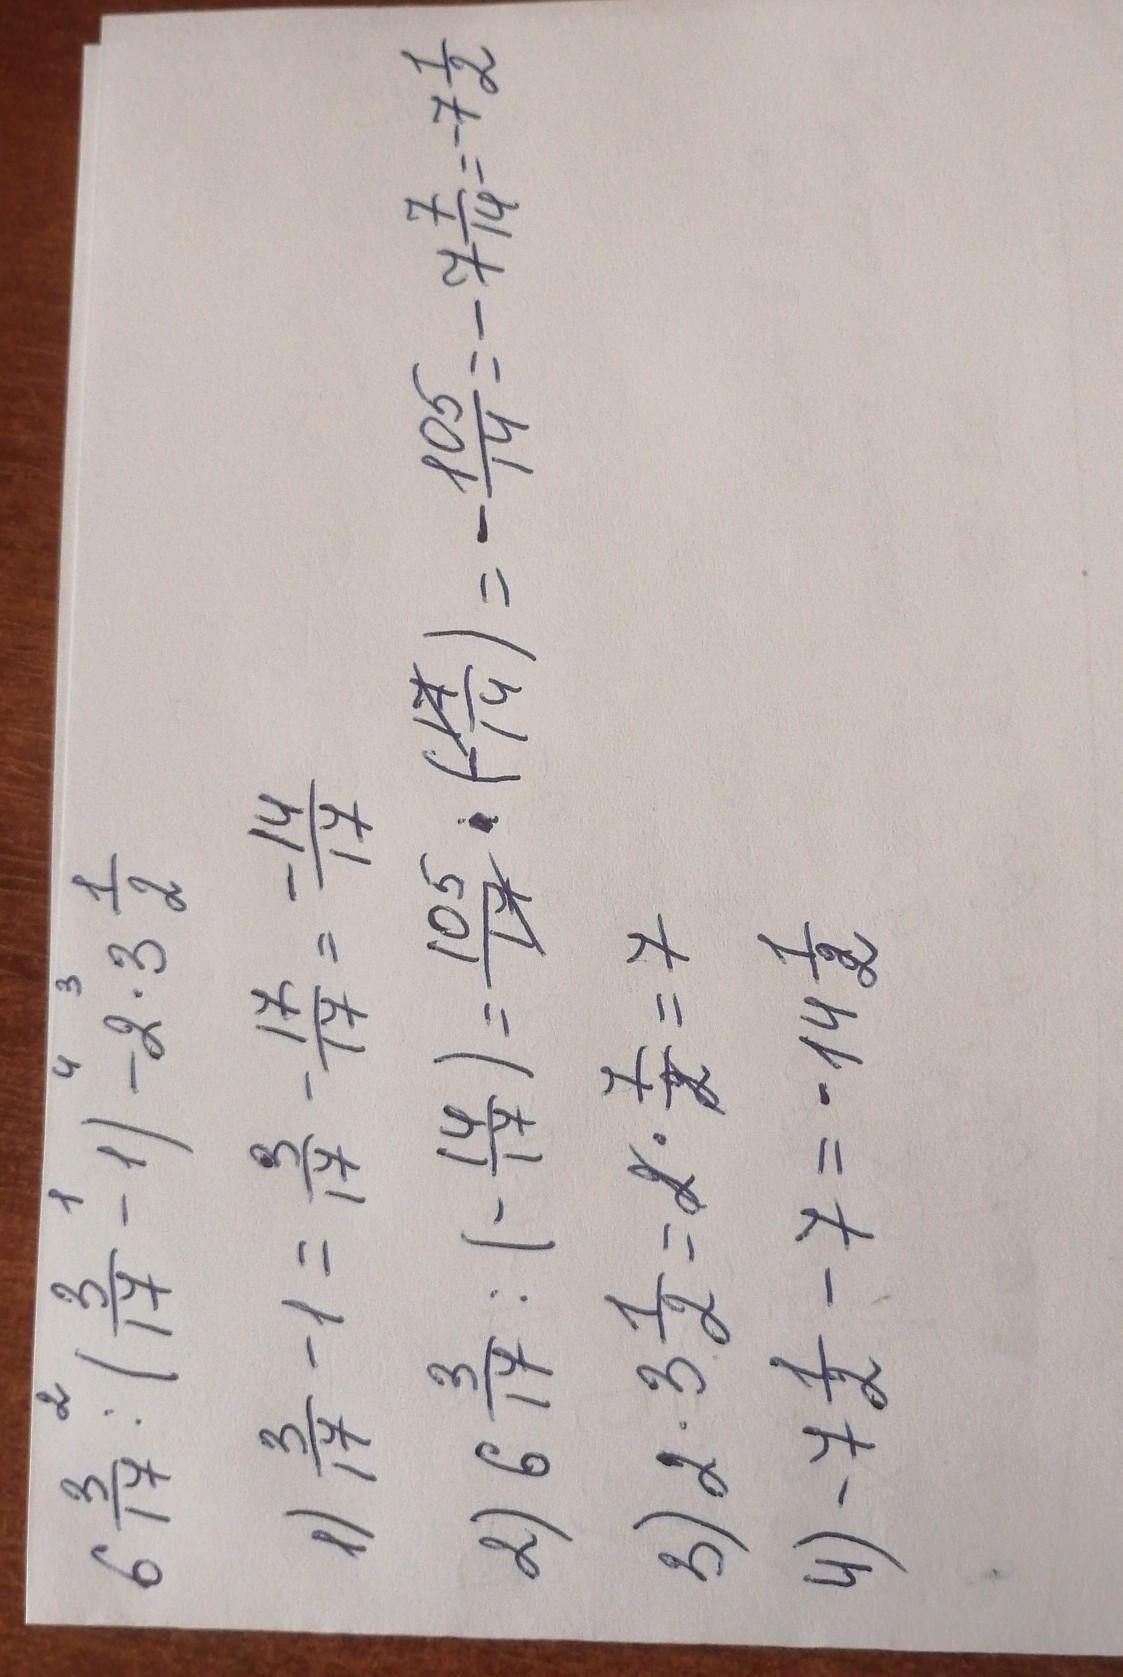 6 3/17 :² (3/17 -¹ 1) -⁴ 2 ·³ 3 1/2
1) 3/17 - 1 = 3/17 - 17/17 = - 14/17
2) 6 3/17 : (- 14/17) = 105/17 · (- 17/14) = - 105/14 = - 7 7/14 = - 7 1/2
3) 2 · 3 1/2 = 2 · 7/2 = 7
4) - 7 1/2 - 7 = - 14 1/2